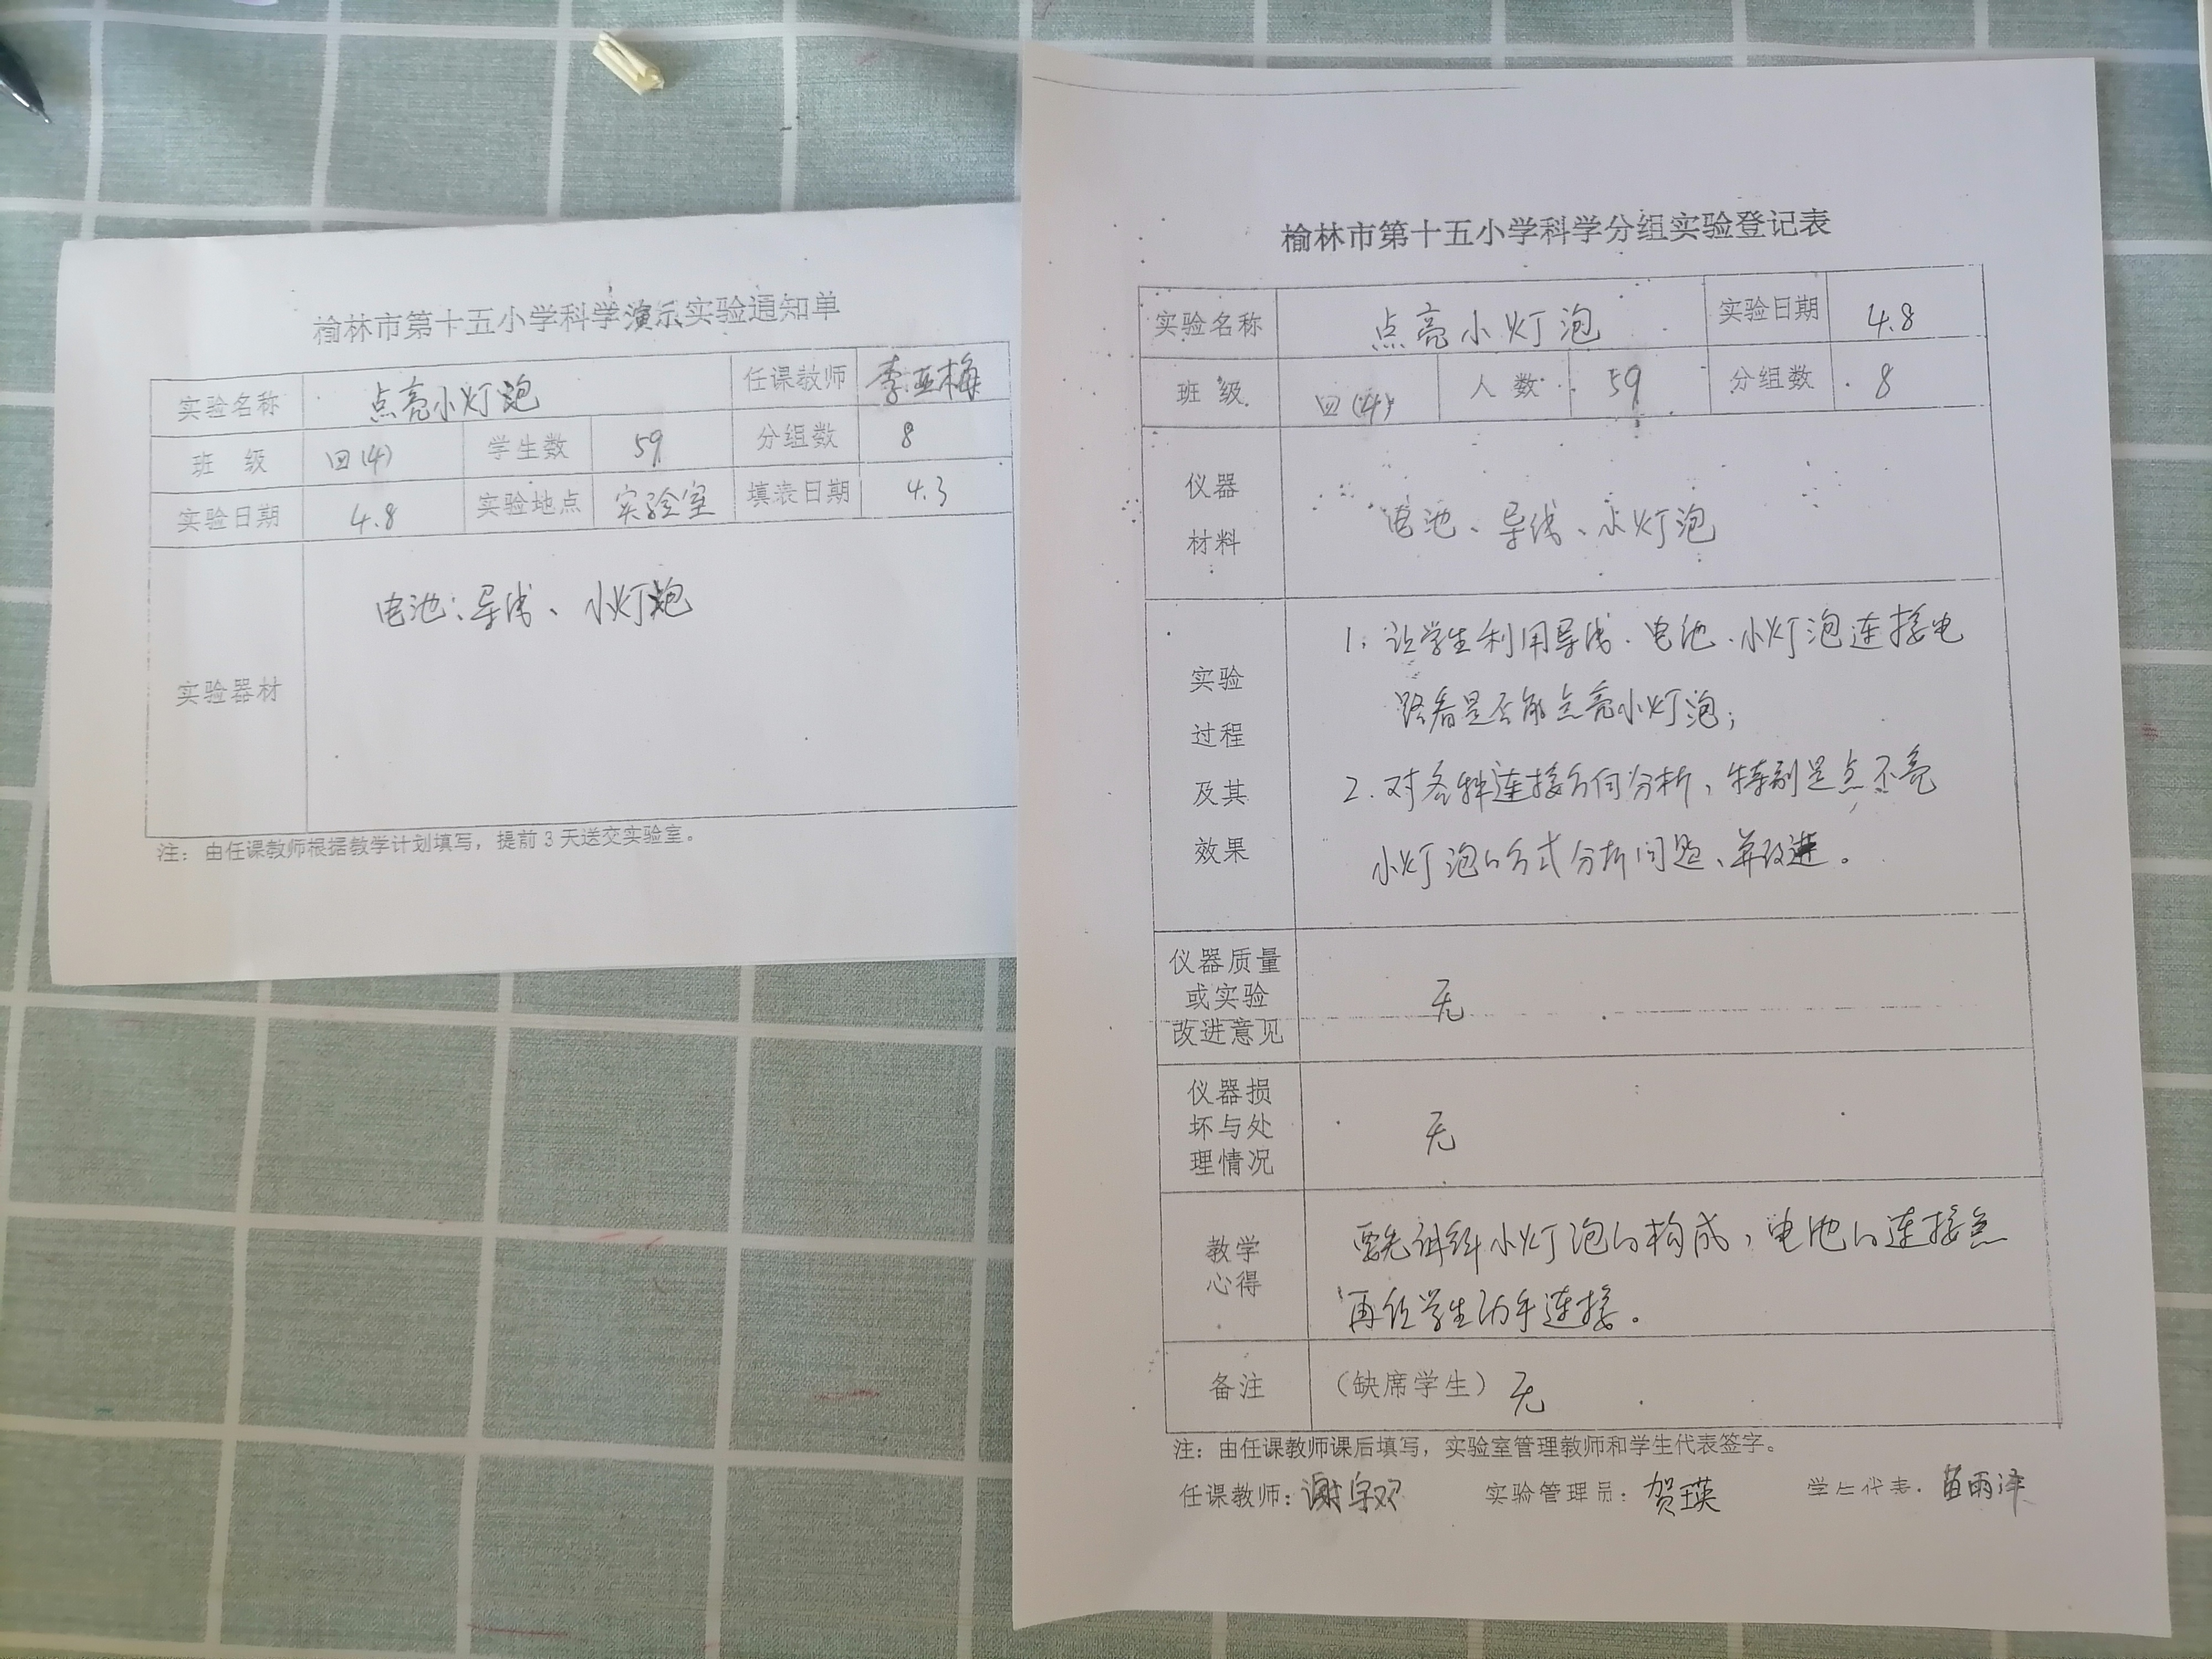 榆林市第十五小学科学演示实验通知单
实验名称 点亮小灯泡 任课教师 李亚梅
班 级 四(4) 学生数 59 分组数 8
实验日期 4.8 实验地点 实验室 填表日期 4.3
实验器材 电池、导线、小灯泡
注：由任课教师根据教学计划填写，提前3天送交实验室。
榆林市第十五小学科学分组实验登记表
实验名称 点亮小灯泡 实验日期 4.8
班 级 四(4) 人 数 59 分组数 8
仪器
材料
电池、导线、小灯泡
实验
过程
及其
效果
1. 让学生利用导线、电池、小灯泡连接电
路看是否能点亮小灯泡；
2. 对各种连接方何分析，特别是点不亮
小灯泡的方式分析问题、并改进。
仪器质量
或实验
改进意见
无
仪器损
坏与处
理情况
无
教学
心得
要先讲解小灯泡的构成，电池的连接点
再让学生动手连接。
备注 （缺席学生）无
注：由任课教师课后填写，实验室管理教师和学生代表签字。
任课教师： 实验管理员：贺瑛 学生代表：苗雨泽